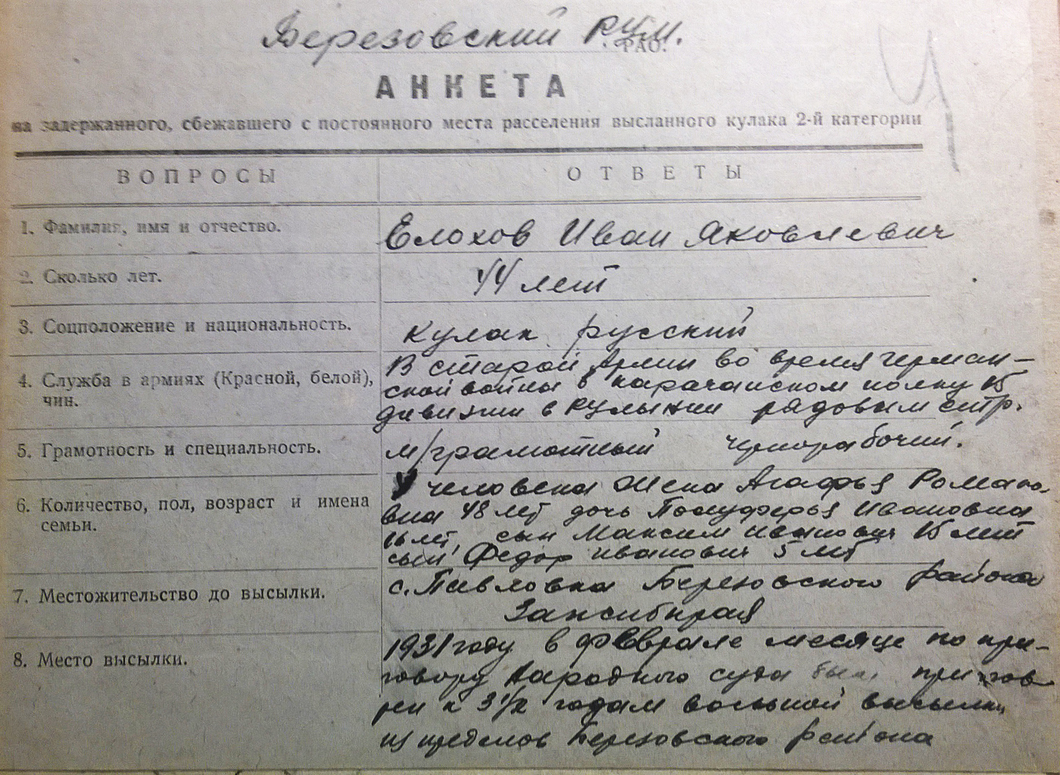 Березовский РУМ.
РАО.
АНКЕТА
на задержанного, сбежавшего с постоянного места расселения высланного кулака 2-й категории
ВОПРОСЫ
ОТВЕТЫ
1. Фамилия, имя и отчество.
Елохов Иван Яковлевич
2. Сколько лет.
44 лет
3. Соцположение и национальность.
кулак русский
4. Служба в армиях (Красной, белой),
чин.
В старой Армии во время герман-
ской войны в карачаиском полку 15
дивизии в Румынии рядовым стр.
5. Грамотность и специальность.
м/грамотный чернорабочий.
6. Количество, пол, возраст и имена
семьи.
4 человека Жена Агафья Рома
вна 48 лет дочь Полуферья Ивановна
16 лет, сын Максим Иванович 15 лет
сын Федор Иванович 5 лет
7. Местожительство до высылки.
с. Павловка Березовского района
Запсибкрая
8. Место высылки.
1931 году в феврале месяце по при-
говору Народного суда был пригов
рен к 3 1/2 годам вольной высылки
из пределов Березовского района